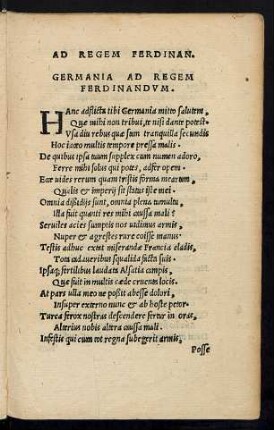 AD REGEM FERDINAN.
GERMANIA AD REGEM
FERDINANDVM.
HAnc adflicta tibi Germania mitto salutem,
Quæ mihi non tribui, te nisi dante potest.
Vsa diu rebus quæ sum tranquilla secundis
Hoc iaceo multis tempore pressa malis.
De quibus ipsa tuum supplex cum numen adoro,
Ferre mihi solus qui potes, adfer opem.
En uides rerum quam tristis forma mearum,
Qualis & imperij sit status iste mei.
Omnia dissidijs sunt, omnia plena tumultu,
Illa fuit quanti res mihi caussa mali?
Seruiles acies sumptis nos uidimus armis,
Nuper & agrestes rure coisse manus.
Testis adhuc extat miserandæ Francia cladis,
Tam aduersis squalida facta suis.
Ipsaq; fertilibus laudata Alsatia campis,
Quæ fuit in multis cæde cruenta locis.
At pars ulla meo ne possit abesse dolori,
Insuper externo nunc & ab hoste petor.
Turca ferox nostras descendere fertur in oras,
Alterius nobis altera caussa mali.
Infestis qui cum tot regna subegerit armis,
Posse